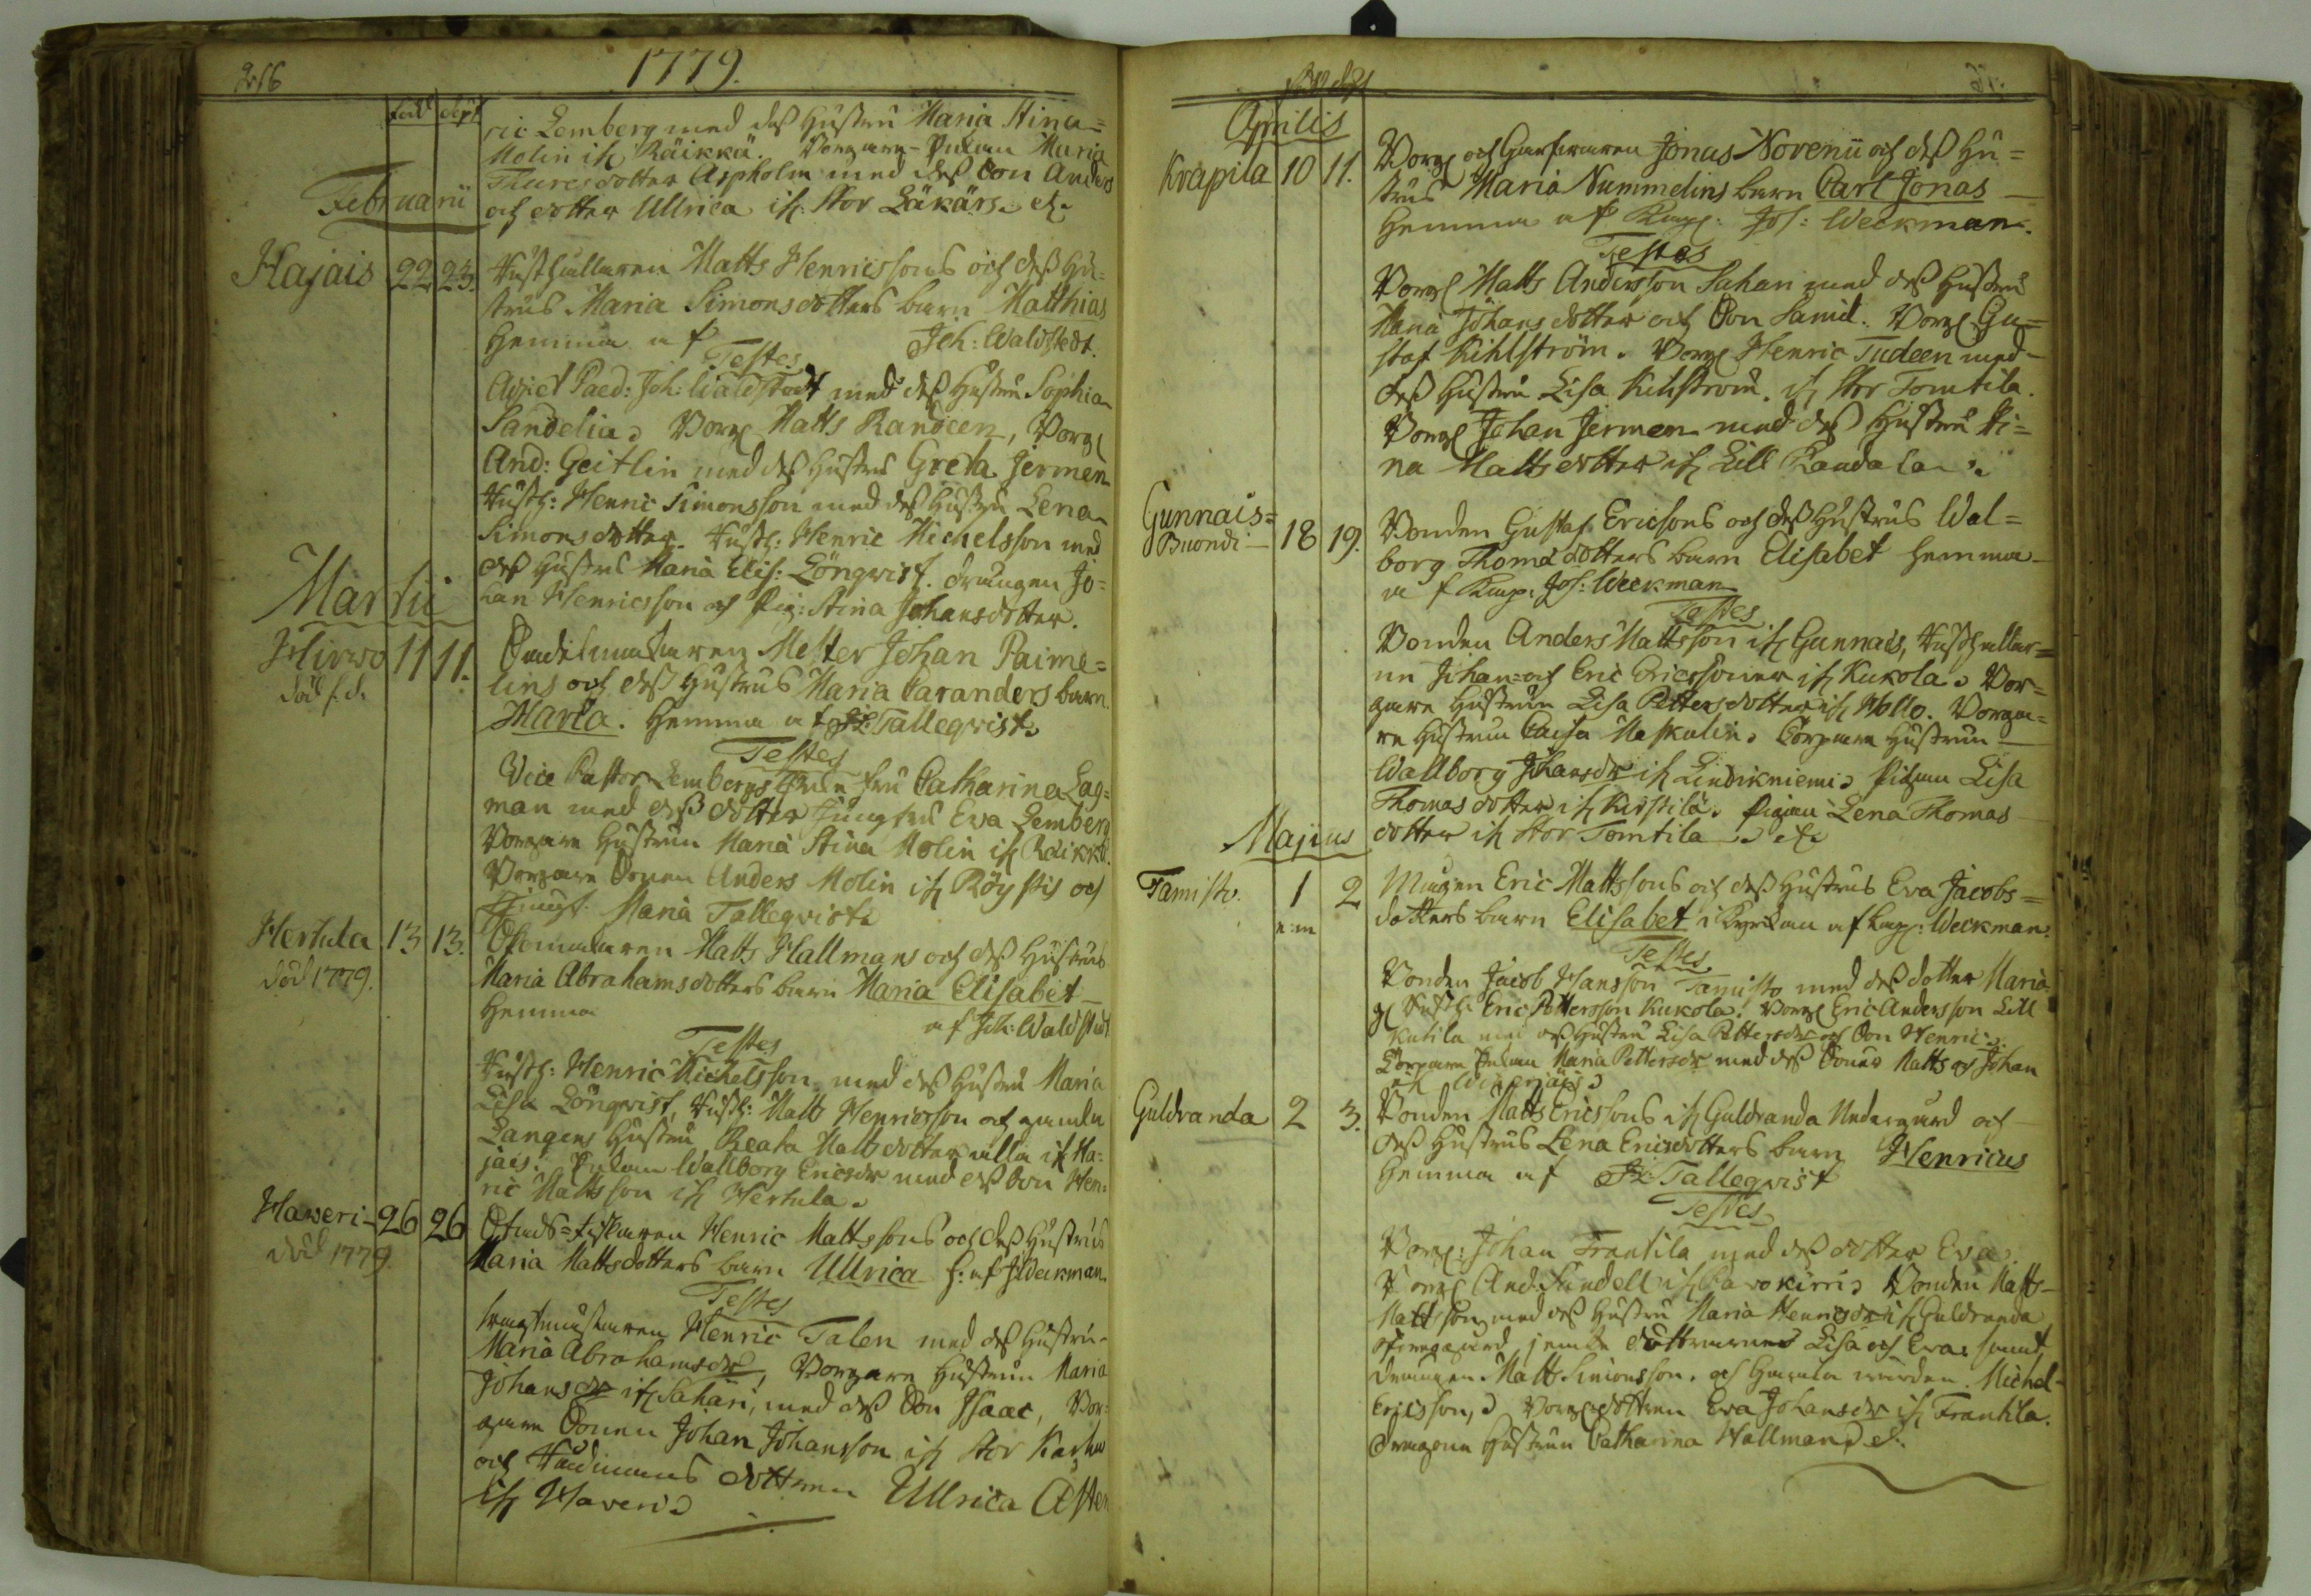 1779.
född döpt
ric Lemberg med dess Hustru Maria Stina
Molin if Räikkä. Borgare-Enkan Maria
Thuresdotter Aspholm med dess Son Anders
och dotter Ullrica if Stor Läkärs. etc
Februarii
Hajais 22 23. Husthållaren Matts Henricssons och dess Hu=
strus Maria Simonsdotters barn Matthias
Hemma af Joh: Waldstedt.
Testes
Adject Paed: Joh: Waldstedt med dess Hustru Sophia
Sandelia, Borg Matts Randeen, Borg
And: Geitlin med dess Hustru Greta Jermen
Husth: Henric Simonsson med dess Hustru Lena
Simonsdotter. Husth: Henric Michelsson med
dess Hustru Maria Elis: Löngvist. drängen Jo=
han Henricsson och Pig: Stina Johansdotter.
Martii
Hirwo 11 11. Sadelmakaren Mester Johan Paime=
död s.d. lins och dess Hustrus Maria Caranders barn
Maria. Hemma af Fr: Tallegvist.
Testes
Vice Pastor Lembergs Enke fru Catharina Lag=
man med dess dotter Jungfru Eva Lemberg
Borgare Hustrun Maria Stina Molin if Räikkä.
Borgare Sonen Anders Molin if Röysis och
Jungf. Maria Tallegvist.
Hertula 13 13. Matts Hallmans och dess Hustrus
död 1779. Maria Abrahamsdotters barn Maria Elisabet
Hemma af Joh: Waldstedt
Testes
Husth: Henric Michelsson med dess Hustru Maria
Lisa Löngvist, Husth: Matts Henricsson och gamla
Langens Hustru Beata Mattsdotter alla if Ha=
jais. Enkan Wallborg Ericsdr med dess Son Hen=
ric Mattsson if Hertula.
Haweri 26 26 Henric Mattssons och dess Hustrus
död 1779. Maria Mattsdotters barn Ullrica h: af J: Weckman.
Testes
Henric Talen med dess Hustru
Maria Abrahamsdr, Borgare Hustrun Maria
Johansdr if Sahari, med dess Son Isaac, Bor=
gare Sonen Johan Johansson if Stor Karhu
och dottren Ullrica
if Haveri
född döpt
Aprilis
Krapila 10 11. Borg och Garfwaren Jonas Novenii och dess Hu=
strus Maria Nummelins barn Carl Jonas
Hemma af Kapl: Jos: Weckman.
Testes
Borg Matts Andersson Sahari med dess Hustru
Maria Johansdotter och Son Samuel. Borg Gu=
staf Kihlström. Borg Henric Tudeen med
dess Hustru Lisa Kihlström if Stor Tomtila.
Borg Johan Jermen med dess Hustru Sti=
na Mattsdotter if Lill Randala.
Gunnais= 18 19. Bonden Gustaf Ericsons och dess Hustrus Wal=
Buondi borg Thomædotters barn Elisabet hemma
af Kap: Jos: Weckman
Testes
Bonden Anders Mattsson if Gunnais, Husthållar=
ne Johan och Eric Ericssöner if Kukola. Bor=
gare Hustrun Lisa Pettersdotter if Hollo. Borga=
re Hustrun Caisa Maskulin. Torpare Hustrun
Wallborg Johansdr if Lindikniemi. Pigan Lisa
Thomasdotter if Kirstilä. Pigan Lena Thomas
dotter if Stor Tomtila. etc
Majius
Tamisto. 1 2 Eric Mattssons och dess Hustrus Eva Jacobs=
e:m dotters barn Elisabet i Kyrkan af Kap: Weckman.
Testes
Bonden Jacob Hansson Tamisto med dess dotter Maria
Husth: Eric Pettersson Kukola. Borg Eric Andersson Lill
Kutila med dess Hustru Lisa Pettersdr och Son Henric.
Torpare Enkan Maria Pettersdr med dess Söner Matts och Johan
if
Guldranda 2 3. Bonden Matts Ericssons if Guldranda Nedergård och
dess Hustrus Lena Ericsdotters barn Henricus
Hemma af Fr: Tallegvist
Testes
Borg: Johan Frantila med dess dotter Eva.
Borg And: Sundell if Bonden Matts
Mattsson med dess Hustru Maria Henricsdr if Guldranda
Öfwergård, jemte döttrarna Lisa och Eva samt
Drängen Matts Simonsson. och Gamla wärden Michel
Ericsson, Borg dottren Eva Johansdr if Frantila.
Dragone Hustrun Catharina Hallman.